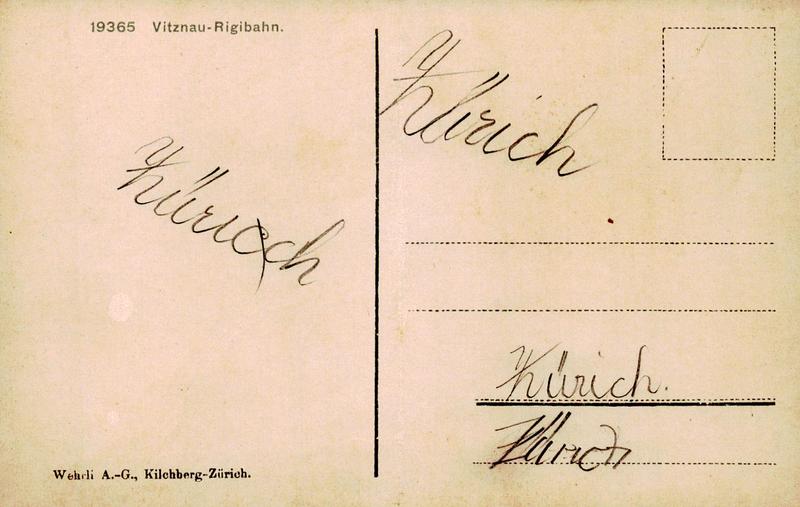 19365 Vitznau-Rigibahn.
Zürich
Züricxch
Zürich.
Zürich
Wehrli A.-G., Kilchberg-Zürich.